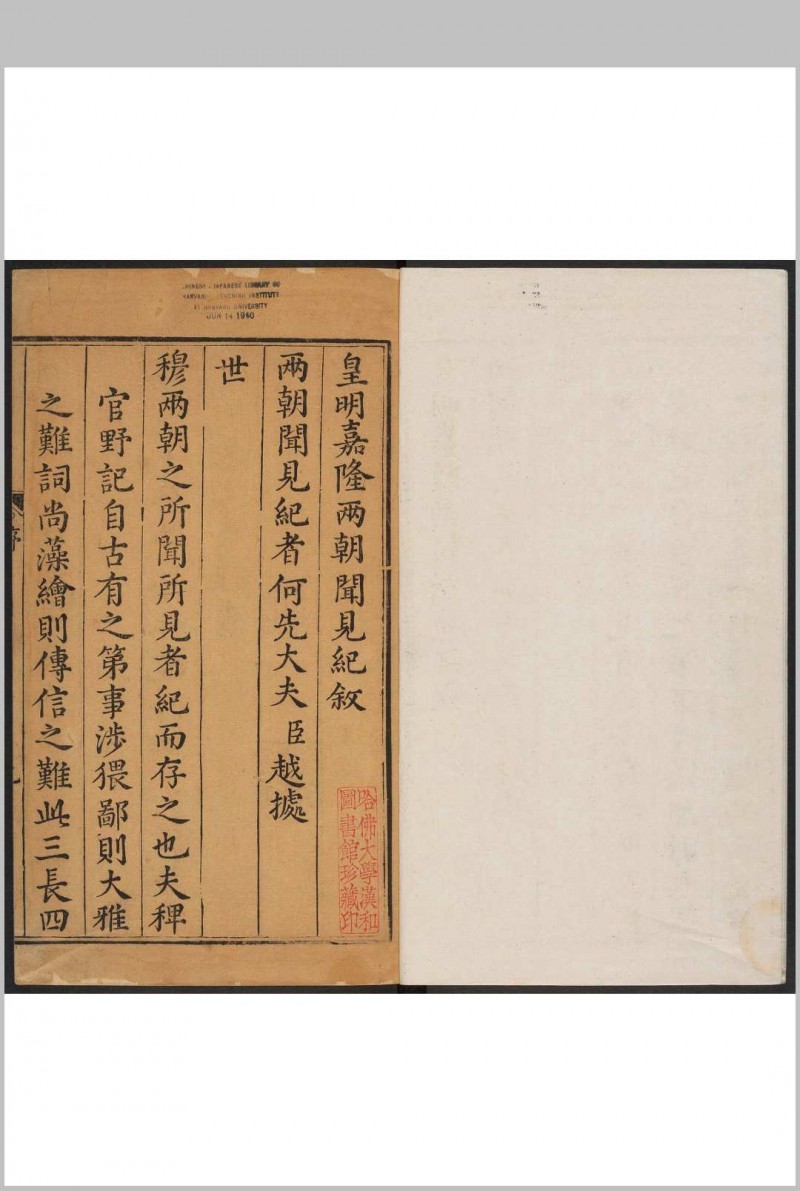 皇明嘉隆兩朝聞見紀敘
兩朝聞見紀者何先大夫臣越據
世
穆兩朝之所聞所見者紀而存之也夫稗
官野記自古有之第事涉猥鄙則大雅
之難詞尚藻繪則傳信之難此三長四
序
哈佛大學漢和
圖書館珍藏印
CHINESE - JAPANESE LIBRARY OF
HARVARD - YENCHING INSTITUTE
AT HARVARD UNIVERSITY
JUN 14 1940